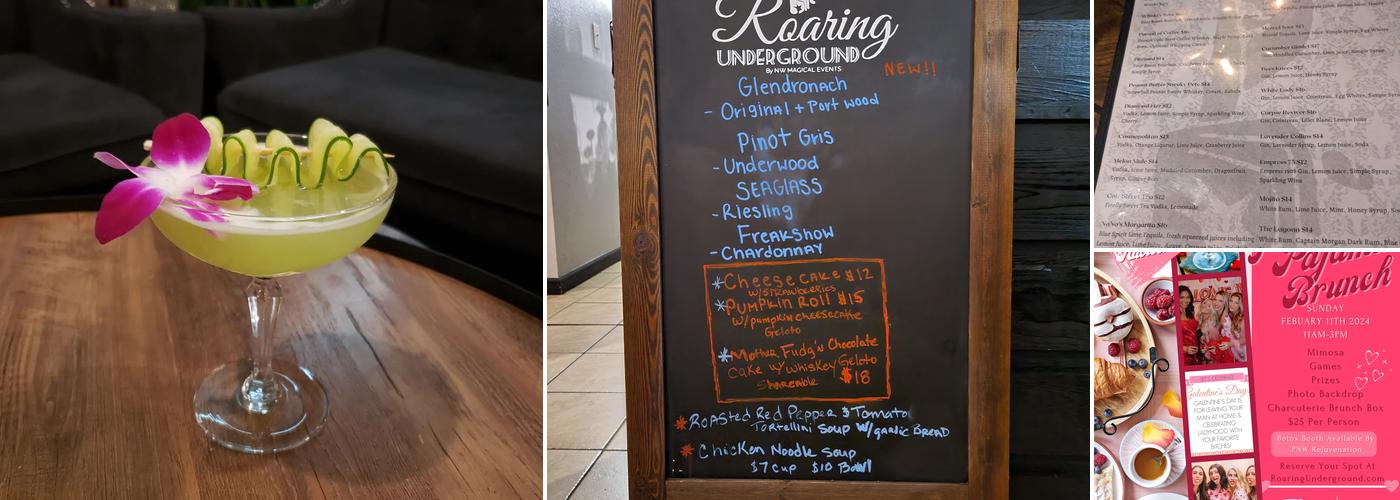 Roaring
UNDERGROUND
By NW MAGICAL EVENTS
NEW!!
Glendronach
- Original + Port wood
Pinot Gris
- Underwood
SEAGLASS
- Riesling
Freakshow
- Chardonnay
*Cheese cake $12
w/strawberries
*Pumpkin Roll $15
w/pumpkin cheesecake
Geloto
*Mother Fudg'n Chocolate
Cake w/ whiskey Geloto
Sharenble $18
*Roasted Red Pepper & Tomato
Tortellini Soup w/ garlic Bread
*Chicken Noodle Soup
$7 cup $10 Bowl
Peanut Butter Sneaky Pete $14
Diamond Fizz $12
Vodka, Lemon Juice, Simple Syrup, Sparkling Wine,
Cherry
Cosmopolitan $13
Vodka, Orange Liqueur, Lime Juice, Cranberry Juice
Melon Mule $14
Vodka, Lime Juice, Muddled Cucumber, Dragonfruit
Firefly Sweet Tea Vodka, Lemonade
NoNo's Margarita $16
Blue Spirit Lime Tequila, fresh squeezed juices including
Cucumber Gimlet $12
Bees Knees $12
Gin, Lemon Juice, Honey Syrup
White Lady $16
Gin, Lemon Juice, Cointreau, Egg Whites, Simple Syrup
Corpse Reviver $16
Gin, Cointreau, Lillet Blanc, Lemon Juice
Lavender Collins $14
Gin, Lavender Syrup, Lemon Juice, Soda
Empress 75 $12
Empress 1908 Gin, Lemon Juice, Simple Syrup,
Sparkling Wine
Mojito $14
White Rum, Lime Juice, Mint, Honey Syrup
The Lagoon $14
White Rum, Captain Morgan Dark Rum, Blue
Pajama
Brunch
SUNDAY
FEBUARY 11TH 2024
11AM-3PM
Mimosa
Games
Prizes
Photo Backdrop
Charcuterie Brunch Box
$25 Per Person
Botox Booth Available By
PNW Rejuvenation
Reserve Your Spot At
RoaringUnderground.com
Galentine's Day
GALENTINE'S DAY IS
FOR LEAVING YOUR
MAN AT HOME &
CELEBRATING
LADYHOOD WITH
YOUR FAVORITE
BITCHES!